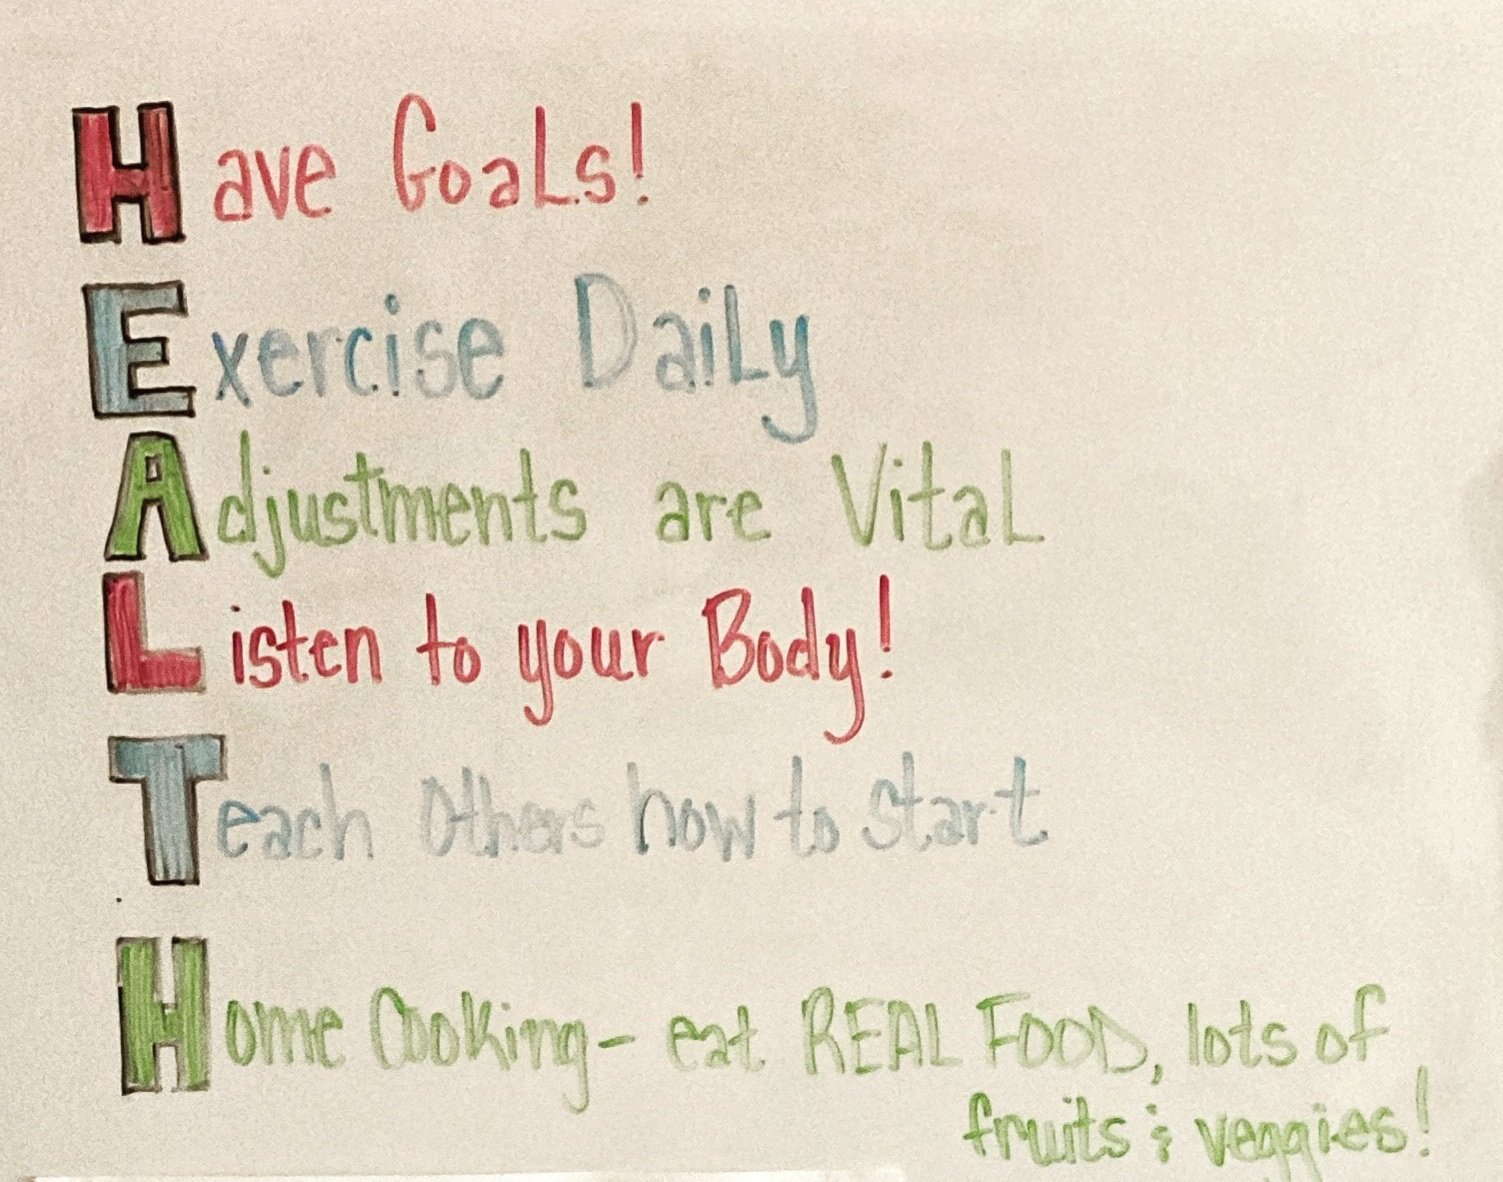 Have Goals!
Exercise Daily
Adjustments are Vital
Listen to your Body!
Teach Others how to Start
Home Cooking - eat REAL FOOD, lots of
fruits & veggies!